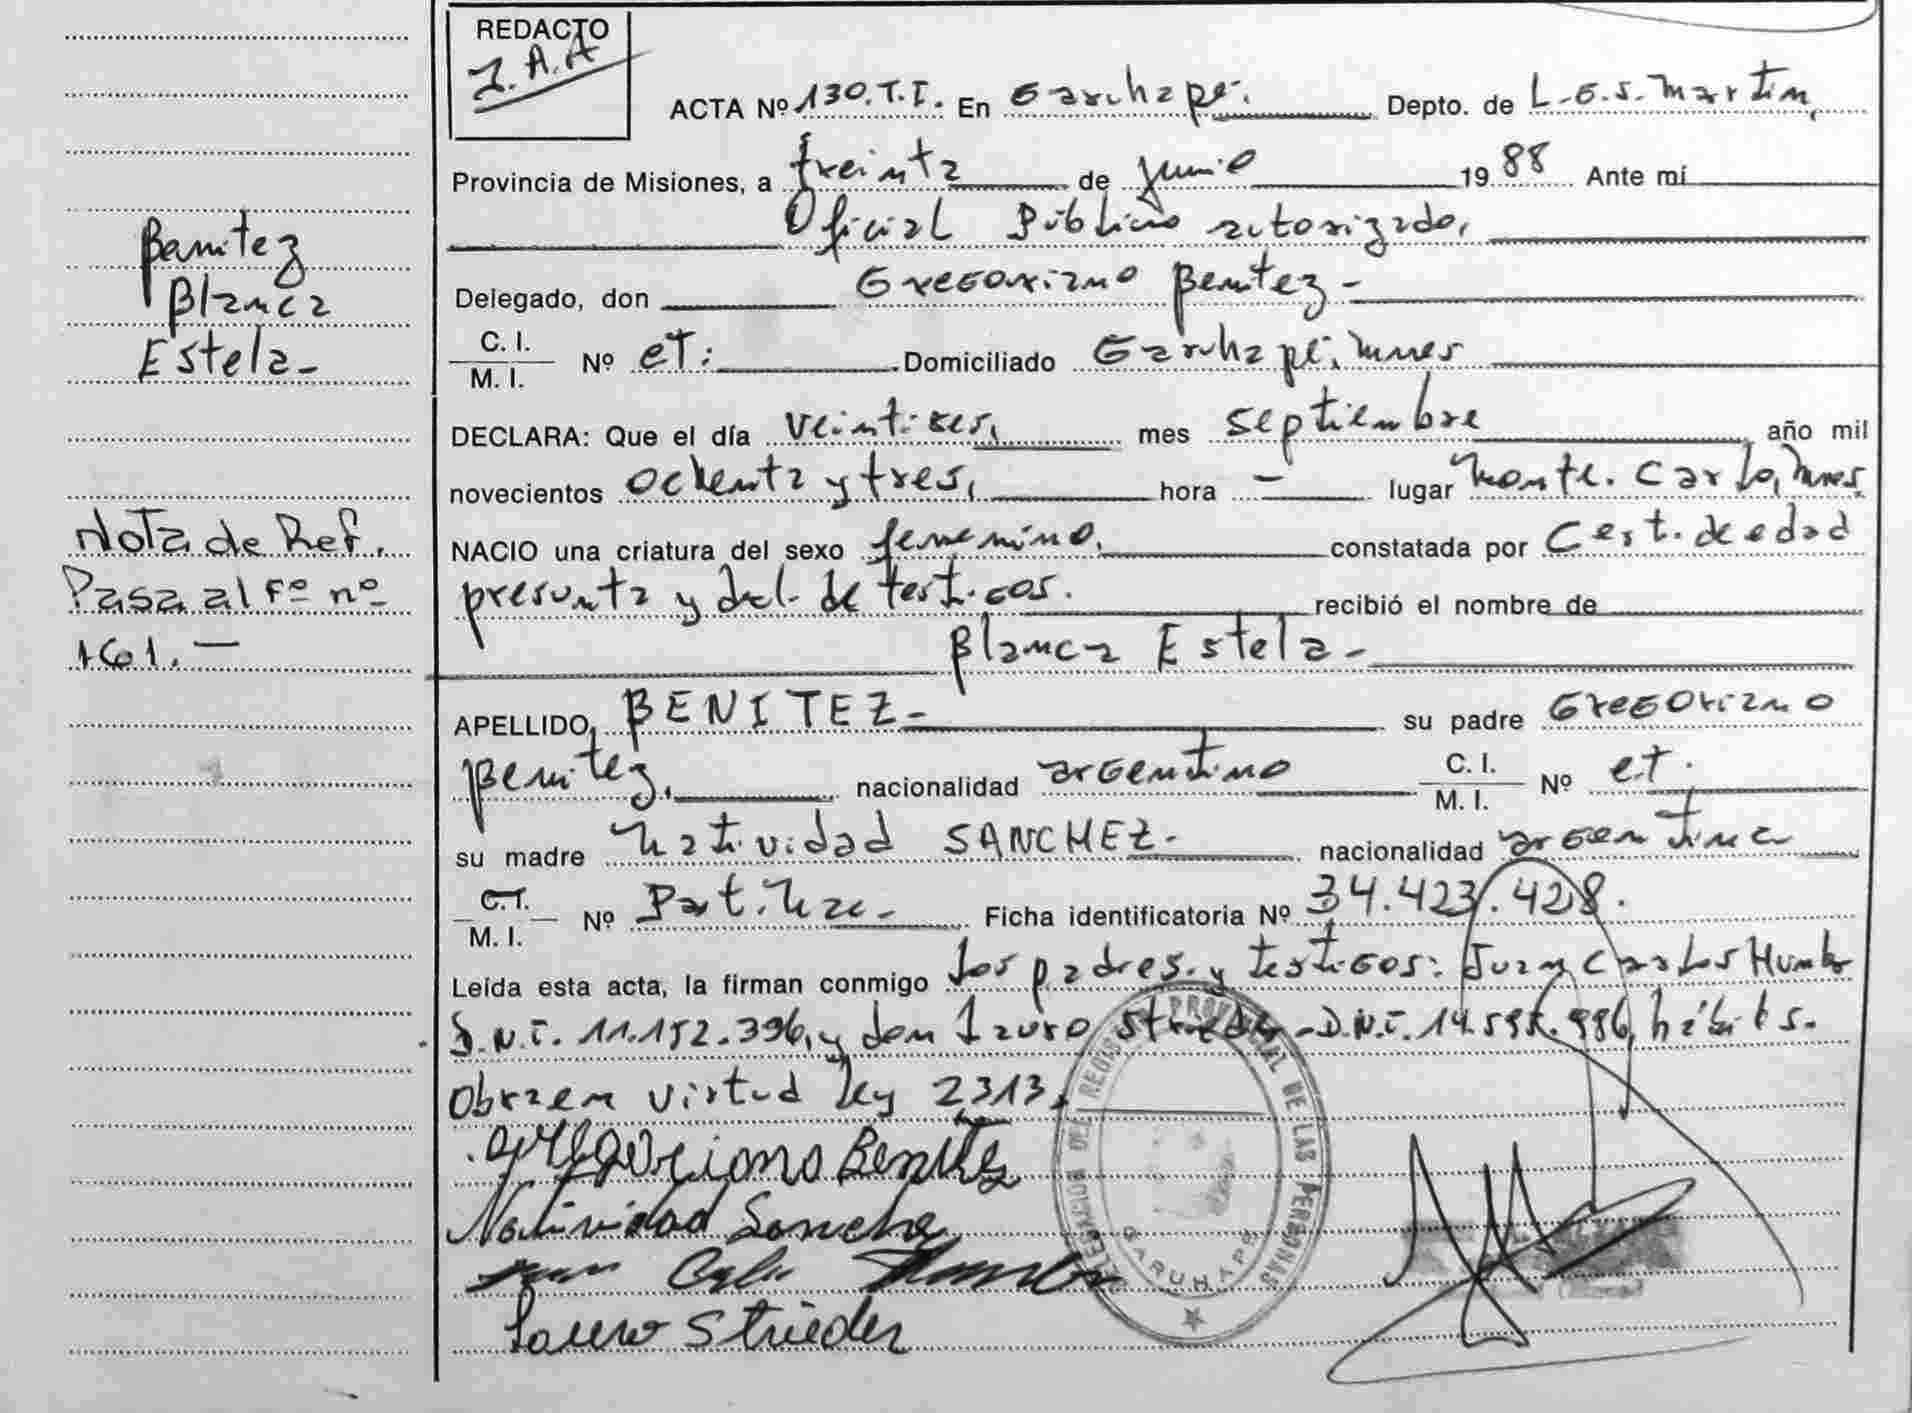 REDACTO
J.A.A
ACTA Nº 130.T.I. En Garuhapé. Depto. de L.G.S. Martin,
Provincia de Misiones, a treinta de junio 1988 Ante mí
Oficial Público autorizado,
Delegado, don Gregoriano Benitez-
C. I.
M. I. Nº et: Domiciliado Garuhapé, Mnes
DECLARA: Que el día veintises, mes septiembre año mil
novecientos ochenta y tres, hora - lugar Monte. Carlo, Mnes.
NACIO una criatura del sexo femenino, constatada por Cert. de edad
presunta y decl. de testigos. recibió el nombre de
Blanca Estela-
APELLIDO, BENITEZ- su padre Gregoriano
Benitez, nacionalidad argentino C. I.
M. I. Nº et.
su madre Natividad SANCHEZ- nacionalidad argentina
C. I.
M. I. Nº Ficha identificatoria Nº 34.423.428.
Leída esta acta, la firman conmigo los padres y testigos: Juan Carlos Humbo
D.N.I. 11.152.396, y don Lauro Strieder-D.N.I. hábiles.
Obra en virtud ley 2313,
Gregoriano Benitez
Natividad Sanche
Juan Carlos
Lauro Strieder
DELEGACION DEL REGISTRO PROVINCIAL DE LAS PERSONAS
GARUHAPE
Benitez
Blanca
Estela-
Nota de Ref.
Pasa al Fº nº
161.-